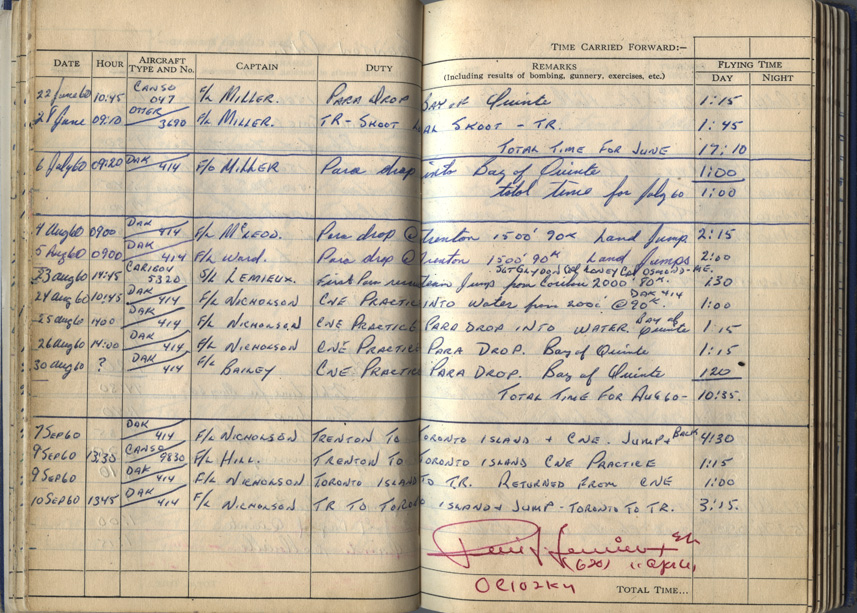 TIME CARRIED FORWARD:—
DATE HOUR AIRCRAFT TYPE AND No. CAPTAIN DUTY REMARKS (Including results of bombing, gunnery, exercises, etc.) FLYING TIME DAY NIGHT
22 June 60 10:45 CANSO 047 F/L MILLER. PARA DROP BAY OF Quinte 1:15
28 June 09:10 OTTER 3690 F/L MILLER. TR-SKOOT SKOOT - TR. 1:45
TOTAL TIME FOR JUNE 17:10
6 July 60 09:20 DAK 414 F/O MILLER Para drop into Bay of Quinte 1:00
total time for July 60 1:00
4 Aug 60 0900 DAK 414 F/L McLEOD. Para drop @ Trenton 1500' 90K Land Jump 2:15
5 Aug 60 0900 DAK 414 F/L Ward. Para drop @ Trenton 1500' 90K Land Jumps 2:00
23 Aug 60 14:45 CARIBOU 5320 S/L LEMIEUX. First Jump from 2000' 90K. 1:30
24 Aug 60 10:45 DAK 414 F/L NICHOLSON CNE PRACTICE INTO WATER from 2000' @ 90K. DAK 414 1:00
25 Aug 60 1400 DAK 414 F/L NICHOLSON CNE PRACTICE PARA DROP INTO WATER Bay of Quinte 1:15
26 Aug 60 14:00 DAK 414 F/L NICHOLSON CNE PRACTICE PARA DROP. Bay of Quinte 1:15
30 Aug 60 ? DAK 414 F/L BAILEY CNE PRACTICE PARA DROP. Bay of Quinte 1:20
TOTAL TIME FOR AUG 60- 10:35.
7 SEP 60 DAK 414 F/L NICHOLSON TRENTON TO TORONTO ISLAND + CNE. JUMP + BACK 4:30
9 SEP 60 13:30 CANSO 9830 F/L HILL. TRENTON TO TORONTO ISLAND CNE PRACTICE 1:15
9 SEP 60 DAK 414 F/L NICHOLSON TORONTO ISLAND TO TR. RETURNED FROM CNE 1:00
10 SEP 60 1345 DAK 414 F/L NICHOLSON TR TO TORONTO ISLAND & JUMP - TORONTO TO TR. 3:15.
OC 102 KU
TOTAL TIME...